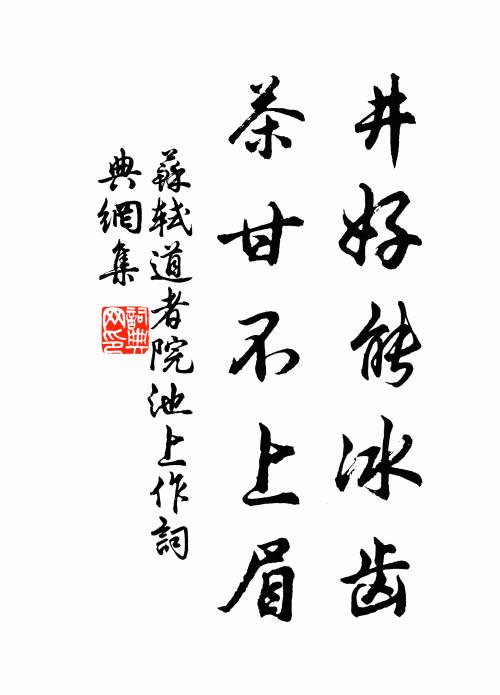 井好能冰齿
茶甘不上眉
蘇軾道者院池上作詞
典網集
詞典网印